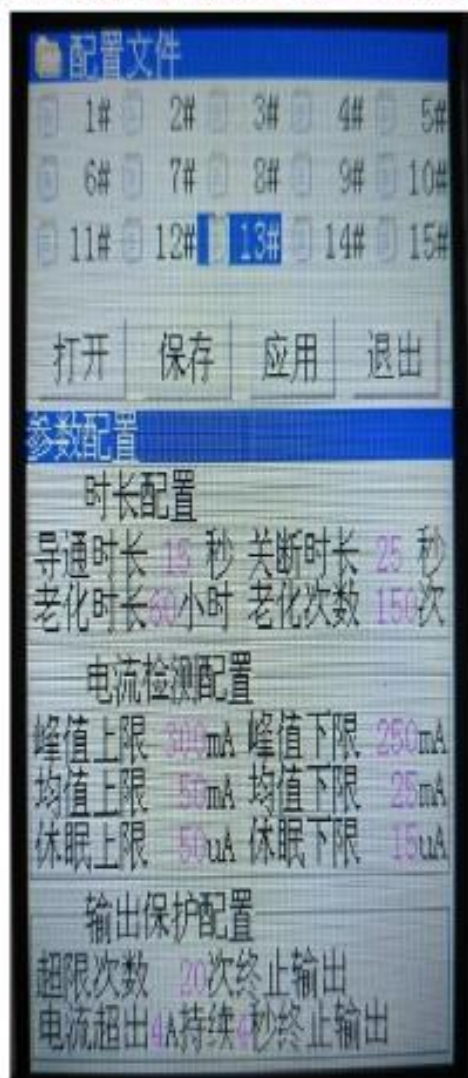 配置文件
1# 2# 3# 4# 5#
6# 7# 8# 9# 10#
11# 12# 13# 14# 15#
打开 保存 应用 退出
参数配置
时长配置
导通时长 15 秒 关断时长 25 秒
老化时长 60小时 老化次数 150次
电流检测配置
峰值上限 300mA 峰值下限 250mA
均值上限 50mA 均值下限 25mA
休眠上限 50uA 休眠下限 15uA
输出保护配置
超限次数 20次终止输出
电流超出4A持续 秒终止输出